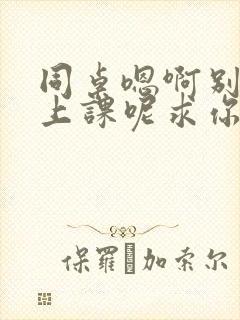 同桌嗯啊别
上課呢求你
保羅·加索尔